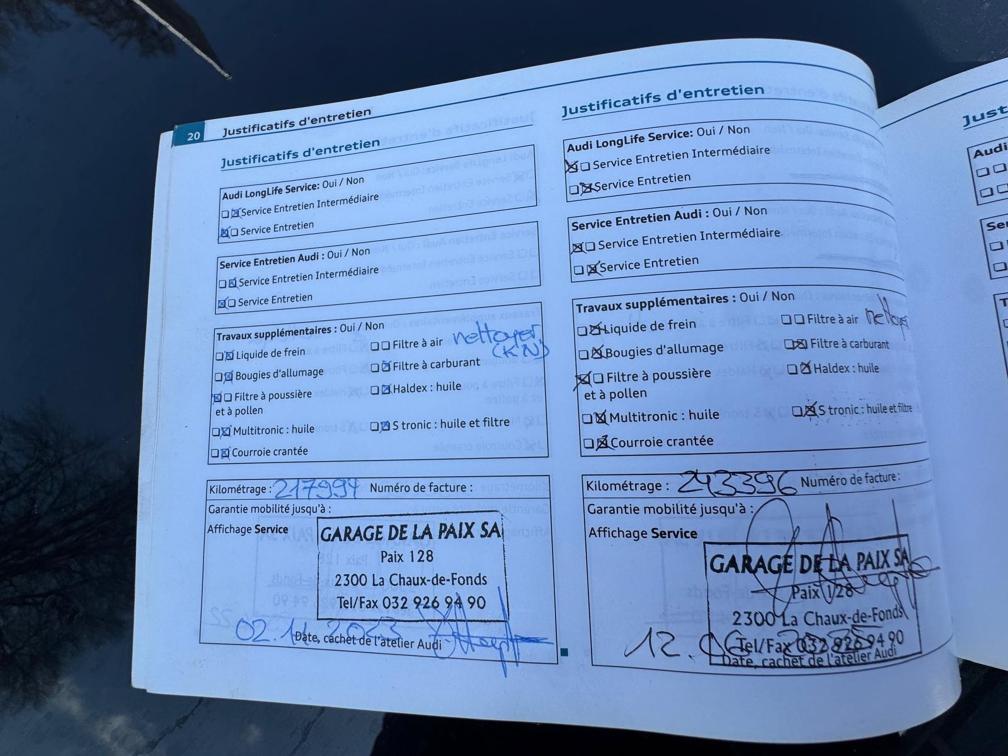 20 Justificatifs d'entretien
Justificatifs d'entretien
Audi LongLife Service: Oui / Non
Service Entretien Intermédiaire
Service Entretien
Service Entretien Audi : Oui / Non
Service Entretien Intermédiaire
Service Entretien
Travaux supplémentaires : Oui / Non
Liquide de frein
Filtre à air nettoyer
(KN)
Bougies d'allumage
Filtre à carburant
Filtre à poussière
et à pollen
Haldex : huile
Multitronic : huile
S tronic : huile et filtre
Courroie crantée
Kilométrage : 217994 Numéro de facture :
Garantie mobilité jusqu'à :
Affichage Service
GARAGE DE LA PAIX SA
Paix 128
2300 La Chaux-de-Fonds
Tel/Fax 032 926 94 90
02.11.2023
Date, cachet de l'atelier Audi
Justificatifs d'entretien
Audi LongLife Service: Oui / Non
Service Entretien Intermédiaire
Service Entretien
Service Entretien Audi : Oui / Non
Service Entretien Intermédiaire
Service Entretien
Travaux supplémentaires : Oui / Non
Liquide de frein
Filtre à air
Bougies d'allumage
Filtre à carburant
Filtre à poussière
et à pollen
Haldex : huile
Multitronic : huile
S tronic : huile et filtre
Courroie crantée
Kilométrage : 243396 Numéro de facture :
Garantie mobilité jusqu'à :
Affichage Service
GARAGE DE LA PAIX SA
Paix 128
2300 La Chaux-de-Fonds
Tel/Fax 032 926 94 90
12.
Date, cachet de l'atelier Audi
Audi